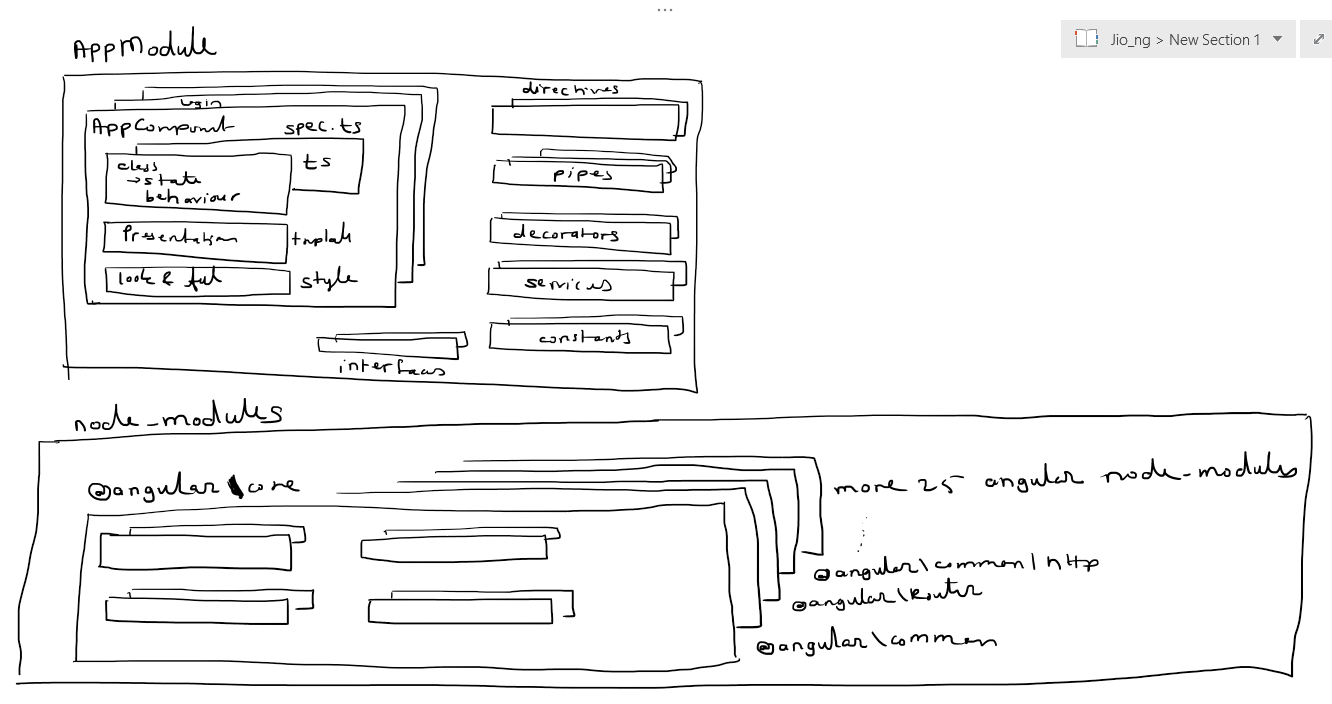 Jio_ng > New Section 1
AppModule
login
AppComponent
spec.ts
ts
class
→ state
behaviour
Presentation
template
look & feel
style
interfaces
directives
pipes
decorators
services
constants
node_modules
@angular\core
more 25 angular node-modules
@angular\common/http
@angular\Router
@angular\common